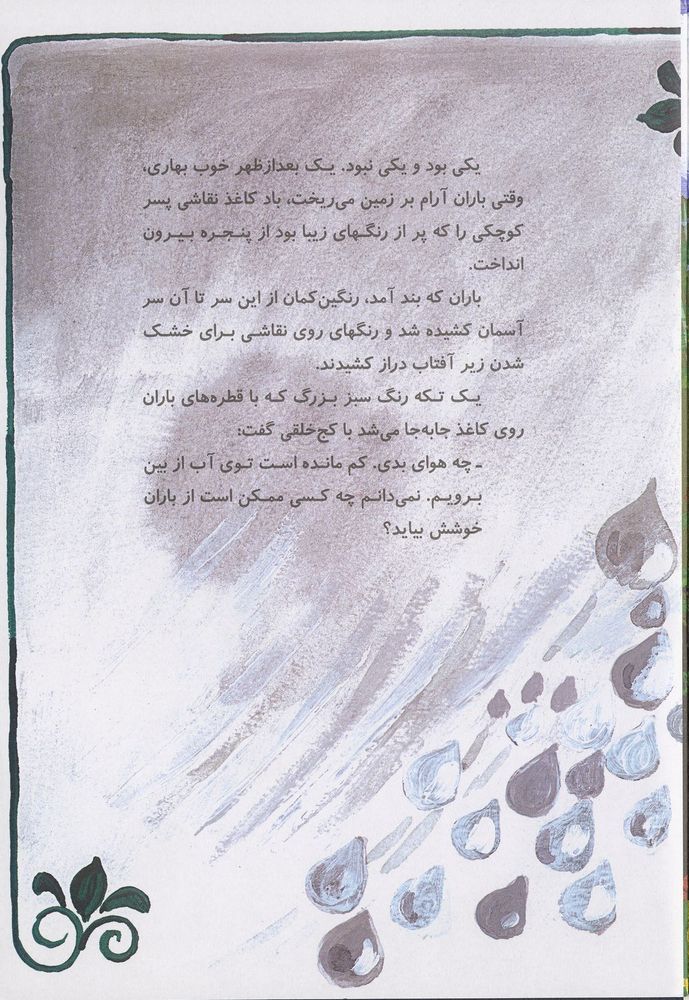 یکی بود و یکی نبود. یک بعدازظهر خوب بهاری،
وقتی باران آرام بر زمین می‌ریخت، باد کاغذ نقاشی پسر
کوچکی را که پر از رنگهای زیبا بود از پنجره بیرون
انداخت.
باران که بند آمد، رنگین‌کمان از این سر تا آن سر
آسمان کشیده شد و رنگهای روی نقاشی برای خشک
شدن زیر آفتاب دراز کشیدند.
یک تکه رنگ سبز بزرگ که با قطره‌های باران
روی کاغذ جابه‌جا می‌شد با کج‌خلقی گفت:
ـ چه هوای بدی. کم مانده است توی آب از بین
برویم. نمی‌دانم چه کسی ممکن است از باران
خوشش بیاید؟